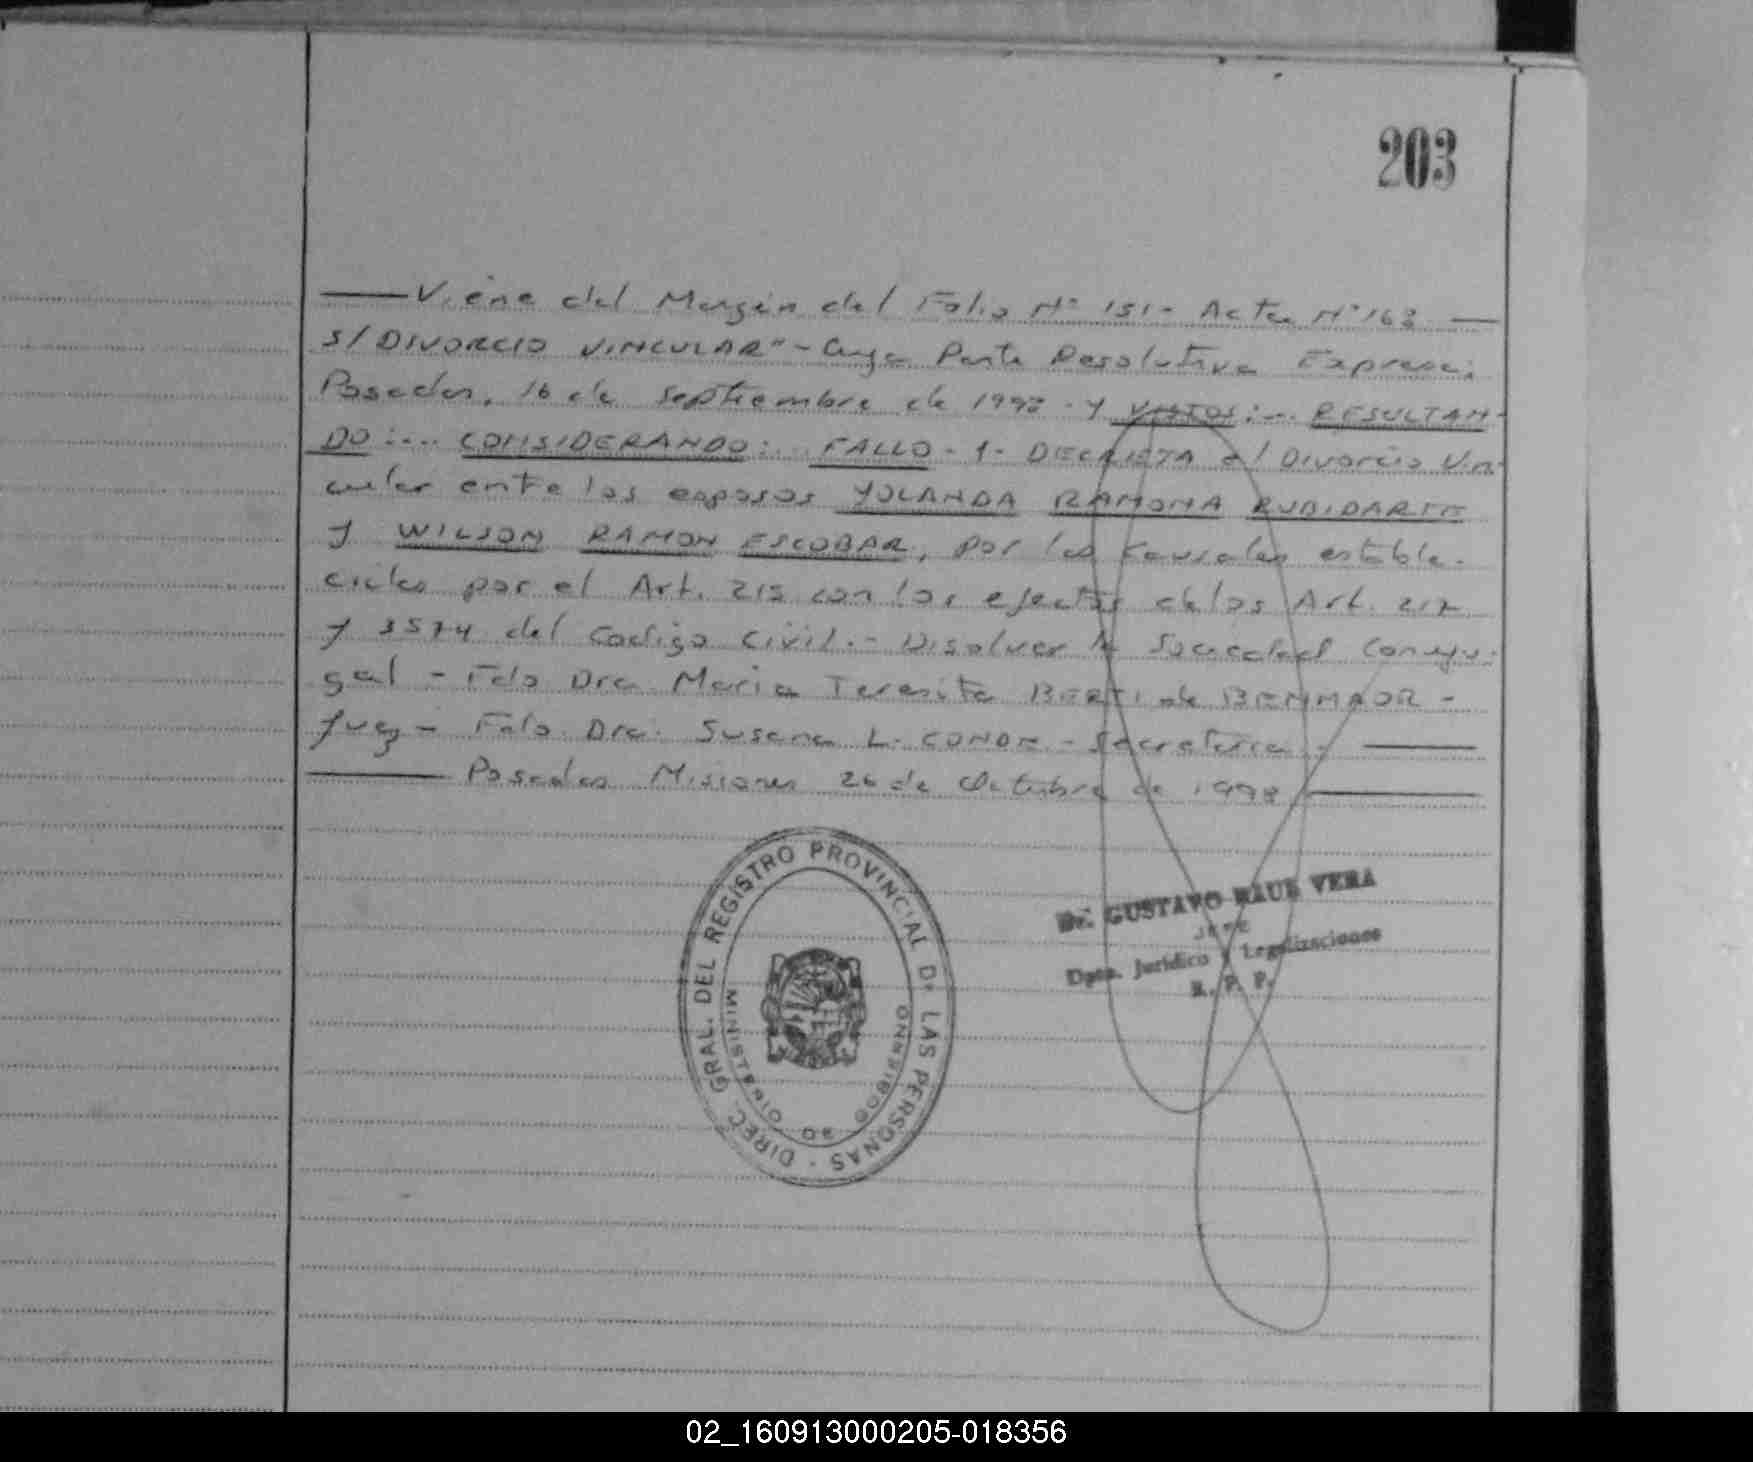 203
Viene del Margen del Folio Nº 151 - Acta Nº 163
S/ DIVORCIO VINCULAR" - Cuya Parte Resolutiva Expresa:
Posadas, 16 de septiembre de 1998 - Y VISTOS:... RESULTAN-
DO:... CONSIDERANDO:... FALLO - 1 - DECRETA el Divorcio Vin-
cular entre los esposos YOLANDA RAMONA
Y WILSON RAMON ESCOBAR, por las causales estable-
cidas por el Art. 215 con los efectos de los Art. 217
y 3574 del Codigo Civil. - Disolver la Sociedad Conyu-
gal - Fdo Dra Maria Teresita BERTI de BENMAOR -
Juez - Fdo. Dra. Susana L. - Secretaria -
Posadas Misiones 26 de Octubre de 1998
DIREC. GRAL. DEL REGISTRO PROVINCIAL DE LAS PERSONAS
MINISTERIO DE GOBIERNO
Dr. GUSTAVO RAUL VERA
JEFE
Dpto. Jurídico y Legalizaciones
R. P. P.
02_160913000205-018356